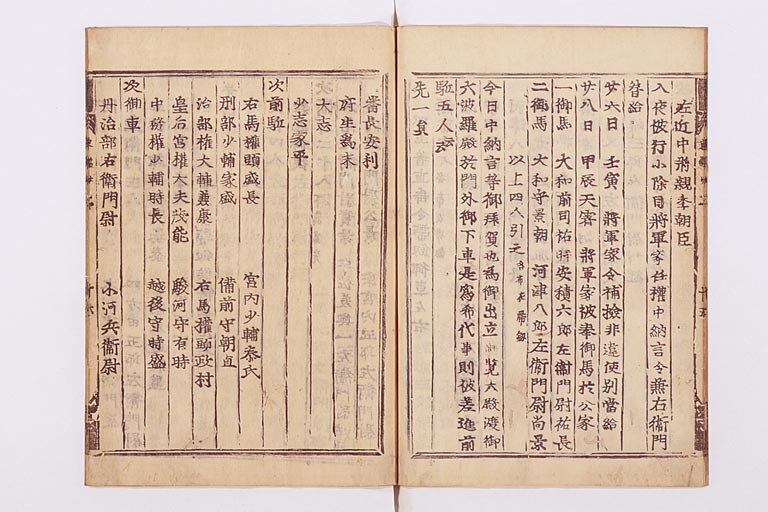 左近中将親季朝臣
入夜被行小除目将軍家任權中納言令兼右衞門
督給
廿六日 壬寅 将軍家令補撿非違使別當給
廿八日 甲辰天霽 将軍家被奉御馬於公家
一御馬 大和前司祐時安積六郎左衞門尉祐長
二御馬 大和守景朝 河津八郎左衞門尉尚景
以上四人引之 各布衣帶劔
今日中納言等御拜賀也爲御出立御覽大殿渡御
六波羅殿於門外御下車是爲希代事則被差進前
駈五人云々
先一員
番長安利
府生爲末
大志
少志家平
次前駈
右馬權頭盛長 宮内少輔泰氏
刑部少輔家盛 備前守朝直
治部權大輔兼康 右馬權頭政村
皇后宮權大夫茂能 駿河守有時
中務權少輔時長 越後守時盛
次御車
丹治部右衞門尉 小河兵衞尉
東鑑卅二 十五
東鑑卅二 十六